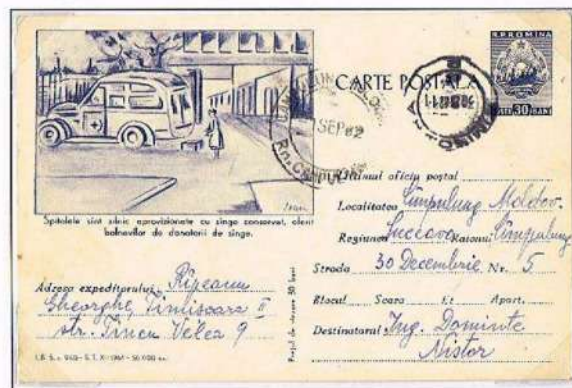 R.P.ROMINA
CARTE POSTALA
POSTE 30 BANI
SEP 62
Spitalele sînt zilnic aprovizionate cu sînge conservat, oferit
bolnavilor de donatorii de sînge.
Adresa expeditorului Rîpeanu
Gheorghe, Timisoara II
str. Iancu Velea 9
Prețul de vînzare 30 bani
oficiu poștal
Localitatea Cîmpulung Moldov.
Regiunea Suceava Raionul Cîmpulung
Strada 30 Decembrie Nr. 5
Blocul Scara Et Apart.
Destinatarul Ing. Dominte
Nistor